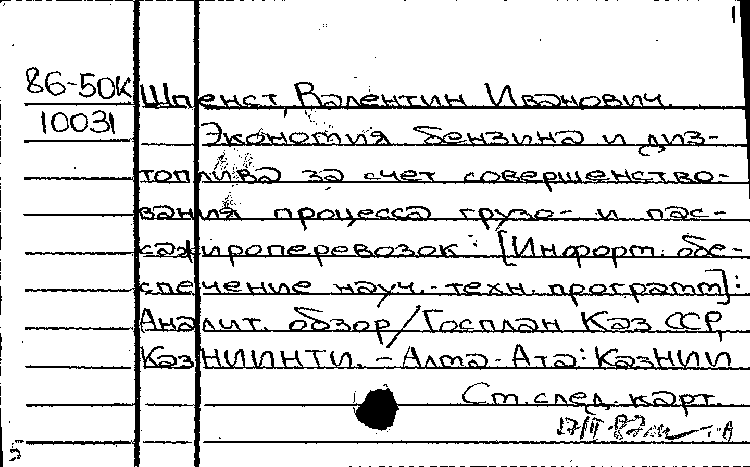 1
86-50К
10031
Шпенст, Валентин Иванович.
Экономия бензина и диз-
топлива за счет совершенство-
вания процесса грузо- и пас-
сажироперевозок: [Информ. обе-
спечение науч.-техн. программ]:
Аналит. обзор/Госплан Каз ССР,
КазНИИНТИ. - Алма-Ата: КазНИИ
См. след. карт.
17/II-87
5